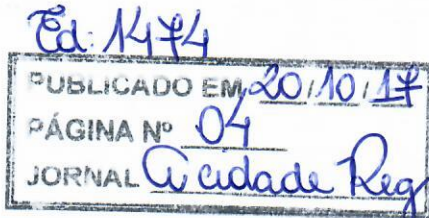 Ed: 1474
PUBLICADO EM 20/10/17
PÁGINA Nº 04
JORNAL A cidade Reg